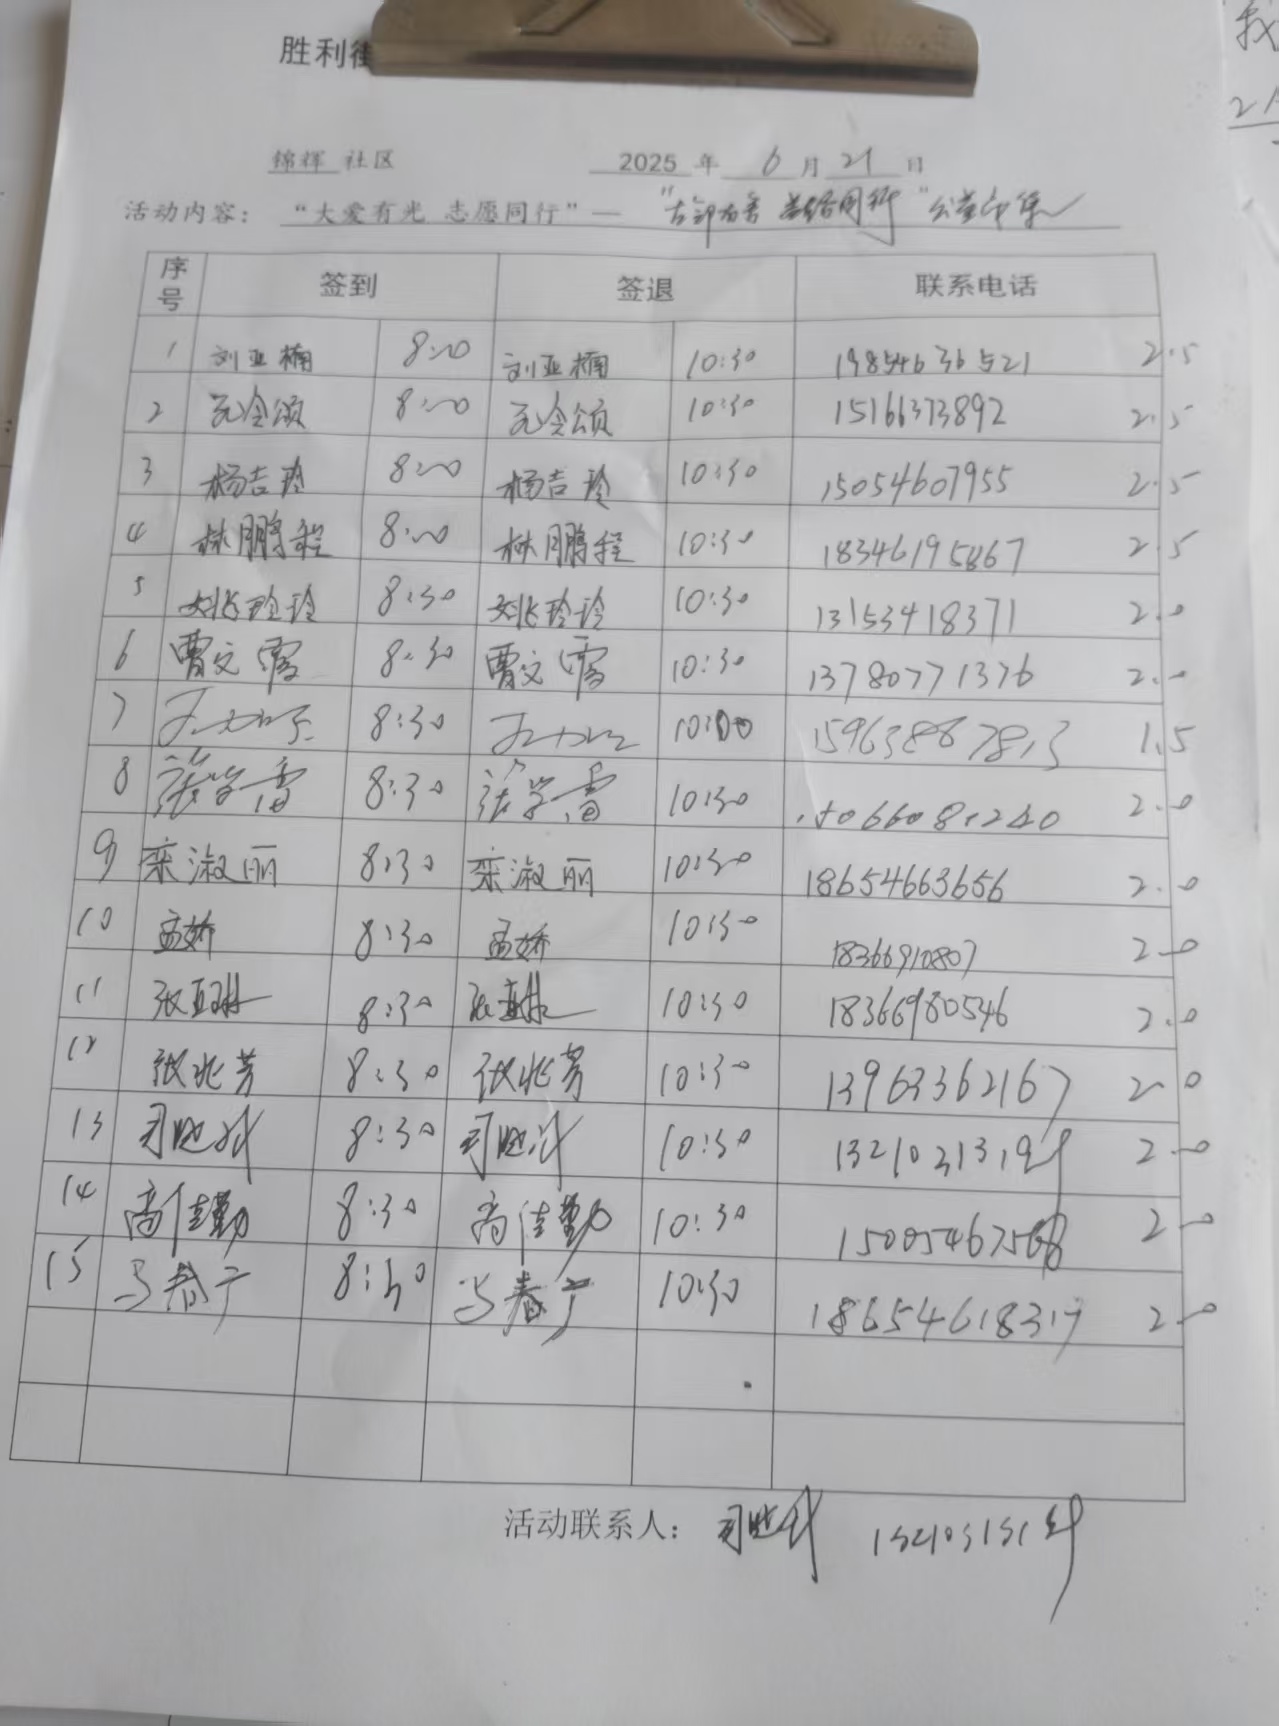 胜利街
锦辉 社区 2025 年 6 月 21 日
活动内容： “大爱有光 志愿同行”— 公益市集
序号 签到 签退 联系电话
1 刘亚楠 8:00 刘亚楠 10:30 19854636521 2.5
2 8:00 10:30 15166373892 2.5
3 杨吉玲 8:00 杨吉玲 10:30 15054607955 2.5
4 林鹏程 8:00 林鹏程 10:30 18346195867 2.5
5 姚玲玲 8:30 姚玲玲 10:30 13153418371 2.0
6 曹文霞 8:30 曹文霞 10:30 13780771376 2.0
7 8:30 10:00 1.5
8 张学雷 8:30 张学雷 10:30 2.0
9 栾淑丽 8:30 栾淑丽 10:30 18654663656 2.0
10 孟娇 8:30 孟娇 10:30 18366910807 2.0
11 张亚琳 8:30 10:30 18366980546 2.0
12 张兆芳 8:30 张兆芳 10:30 13963362167 2.0
13 8:30 10:30 2.0
14 高佳勤 8:30 高佳勤 10:30 2.0
15 马春广 8:30 马春广 10:30 2.0
活动联系人：
我